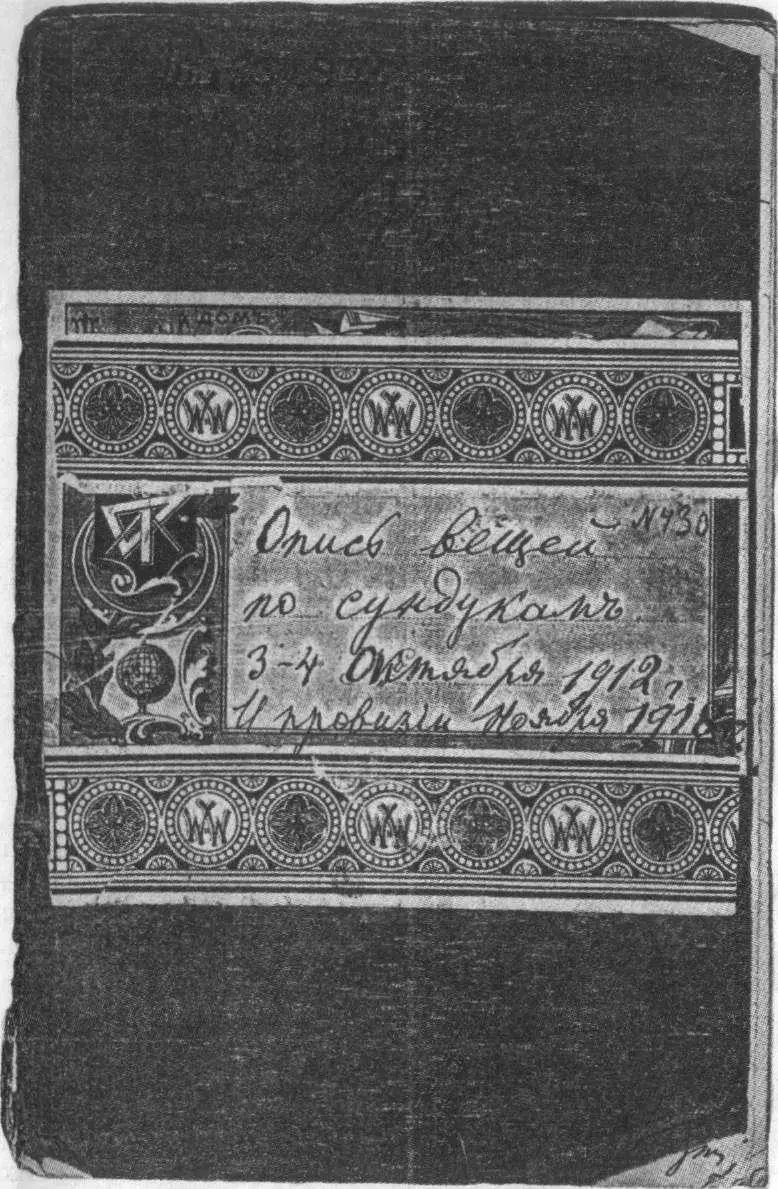 ДОМЪ
№430
Опись вещей
по сундукамъ
3-4 Октября 1912 г.
И провизіи Ноября 191